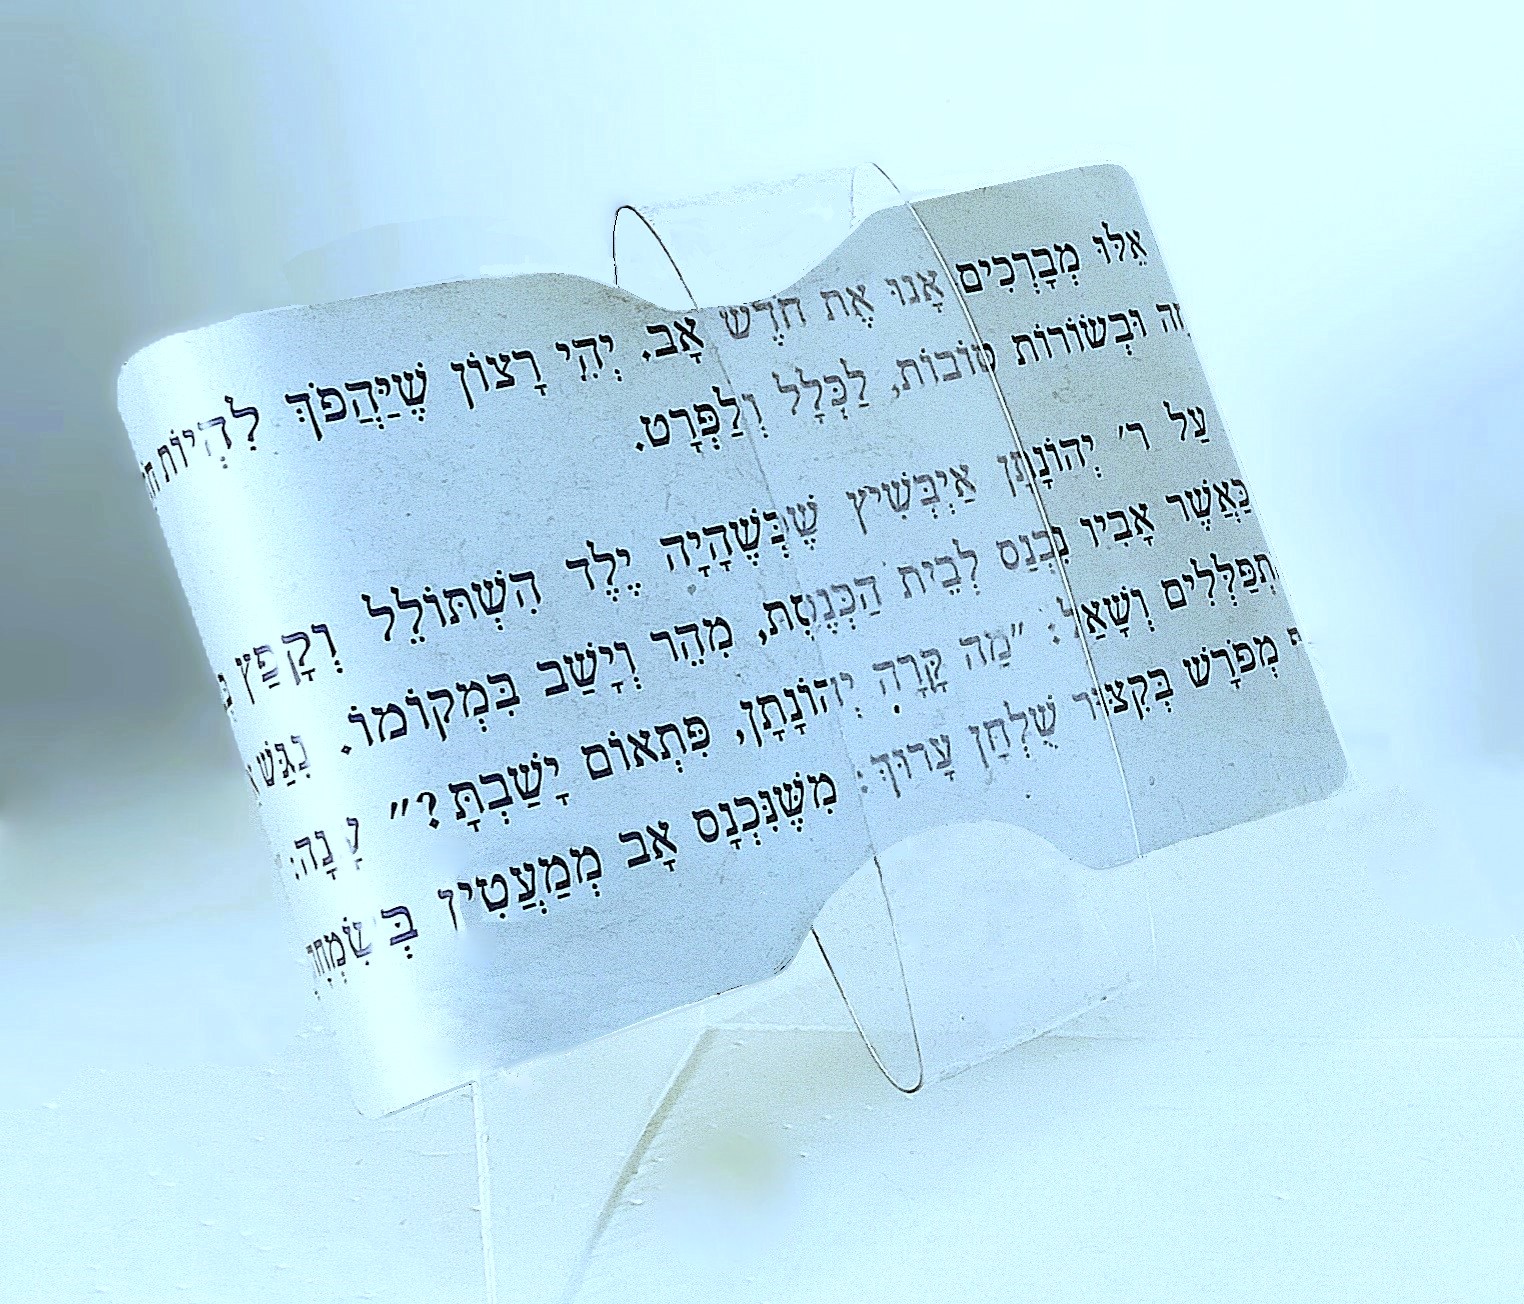 אֵלּוּ מְבָרְכִים אָנוּ אֶת חֹדֶשׁ אָב. יְהִי רָצוֹן שֶׁיַּהֲפֹךְ לִהְיוֹת
וּבְשׂוֹרוֹת טוֹבוֹת, לַכְּלָל וְלַפְּרָט.
עַל ר׳ יְהוֹנָתָן אַיְבְּשִׁיץ שֶׁכְּשֶׁהָיָה יֶלֶד הִשְׁתּוֹלֵל וְקָפַץ
כַּאֲשֶׁר אָבִיו נִכְנַס לְבֵית הַכְּנֶסֶת, מִהֵר וְיָשַׁב בִּמְקוֹמוֹ. נִגַּשׁ
וְשָׁאַל: ״מַה קָּרָה יְהוֹנָתָן, פִּתְאוֹם יָשַׁבְתָּ?״ עָנָה:
מְפֹרָשׁ בְּקִצּוּר שֻׁלְחָן עָרוּךְ: מִשֶּׁנִּכְנָס אָב מְמַעֲטִין בְּשִׂמְחָה